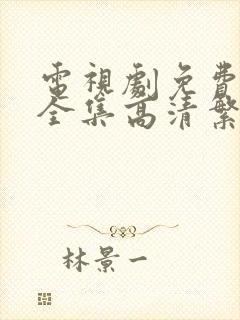 電視劇免費
全集高清繁
林景一